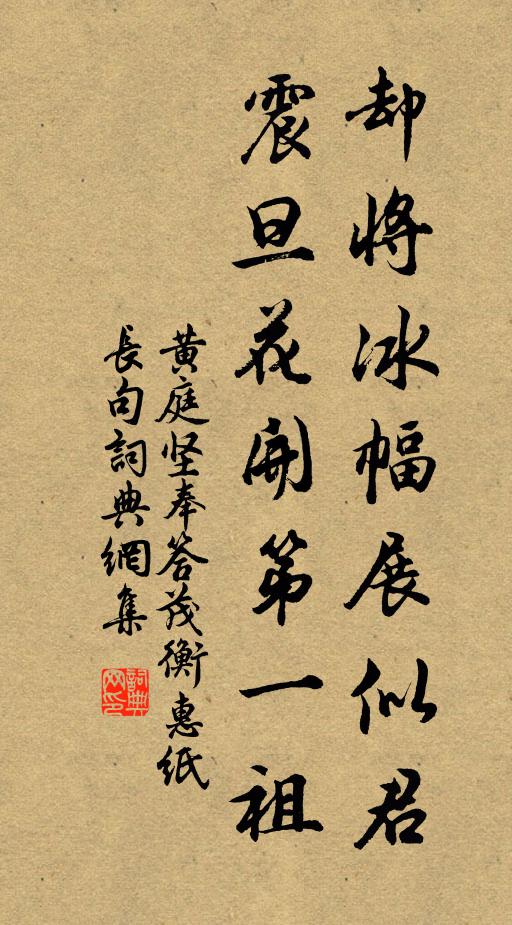 却將冰幅展似君
震旦花開第一祖
黄庭坚奉答茂衡惠紙
長句詞典網集
詞典网印